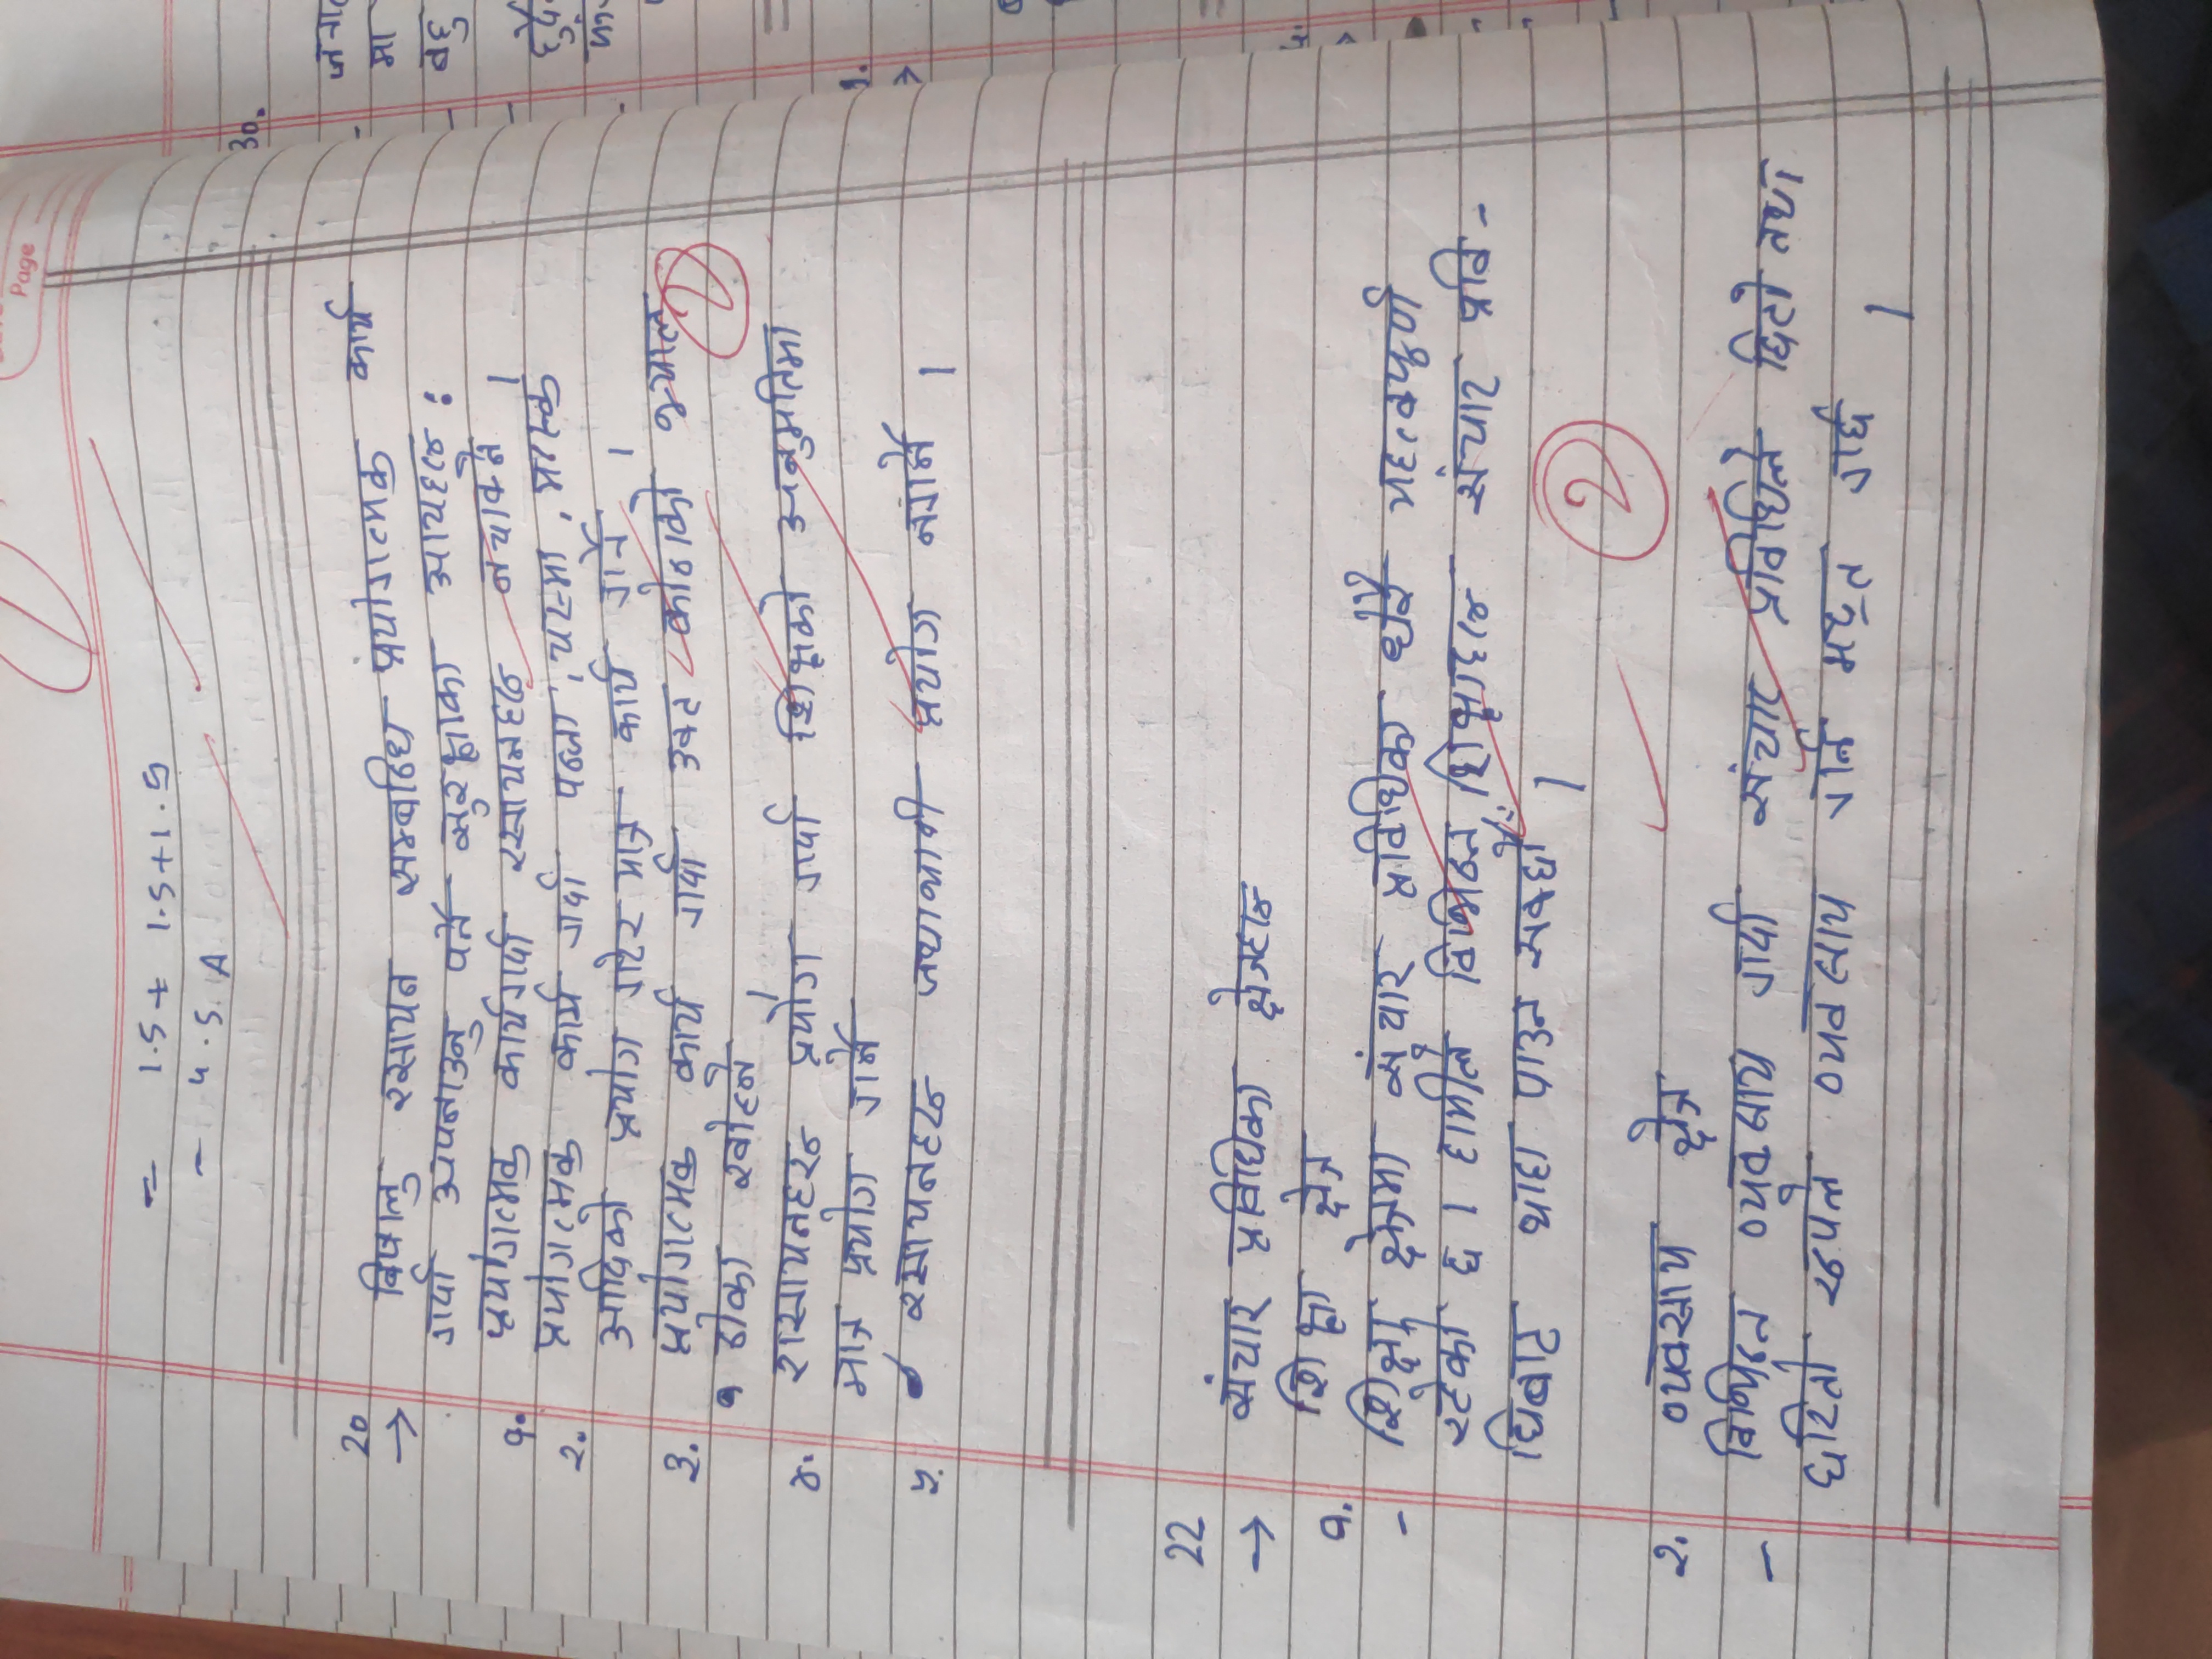 Page
= 1.5 + 1.5 + 1.5
- 4.5 A
20
→ बिषालु रसायन सम्बन्धि प्रयोगत्मक कार्य
गर्दा अपनाउनु पर्ने सुरक्षाका आयहरू :
१. प्रयोगत्मक कार्यगर्दा रसायनहरू नचाक्ने ।
२. प्रयोगत्मक कार्य गर्दा पञ्जा, चस्मा, मास्क
आदिको प्रयोग गरेर मात्र कार्य गर्ने ।
३. प्रयोगत्मक कार्य गर्दा उक्त कोठाको भ्याल
ढोका खोल्ने ।
४. रासायनहरू प्रयोग गर्दा शिक्षको अनुमतिमा
मात्र प्रयोग गर्ने
५. रसायनहरू जथाभावी प्रयोग नगर्ने ।
2
22
→ संचार प्रविधिका क्षेत्रहरू
१. शिक्षा क्षेत्र
- शिक्षा क्षेत्रमा संचार प्रविधिका धेरै महत्वपूर्ण
रहेको छ । हामीले विभिन्न शिक्षाहरू संचार प्रवि-
धिबाट थाहा पाउन सक्छौं ।
2
२. व्यवसाय क्षेत्र
- विभिन्न व्यवसाय गर्दा संचार प्रविधिले छिटो तथा
छरितो रूपले व्यवसाय गर्न मद्दत गर्छ ।
30.
मा
बहु